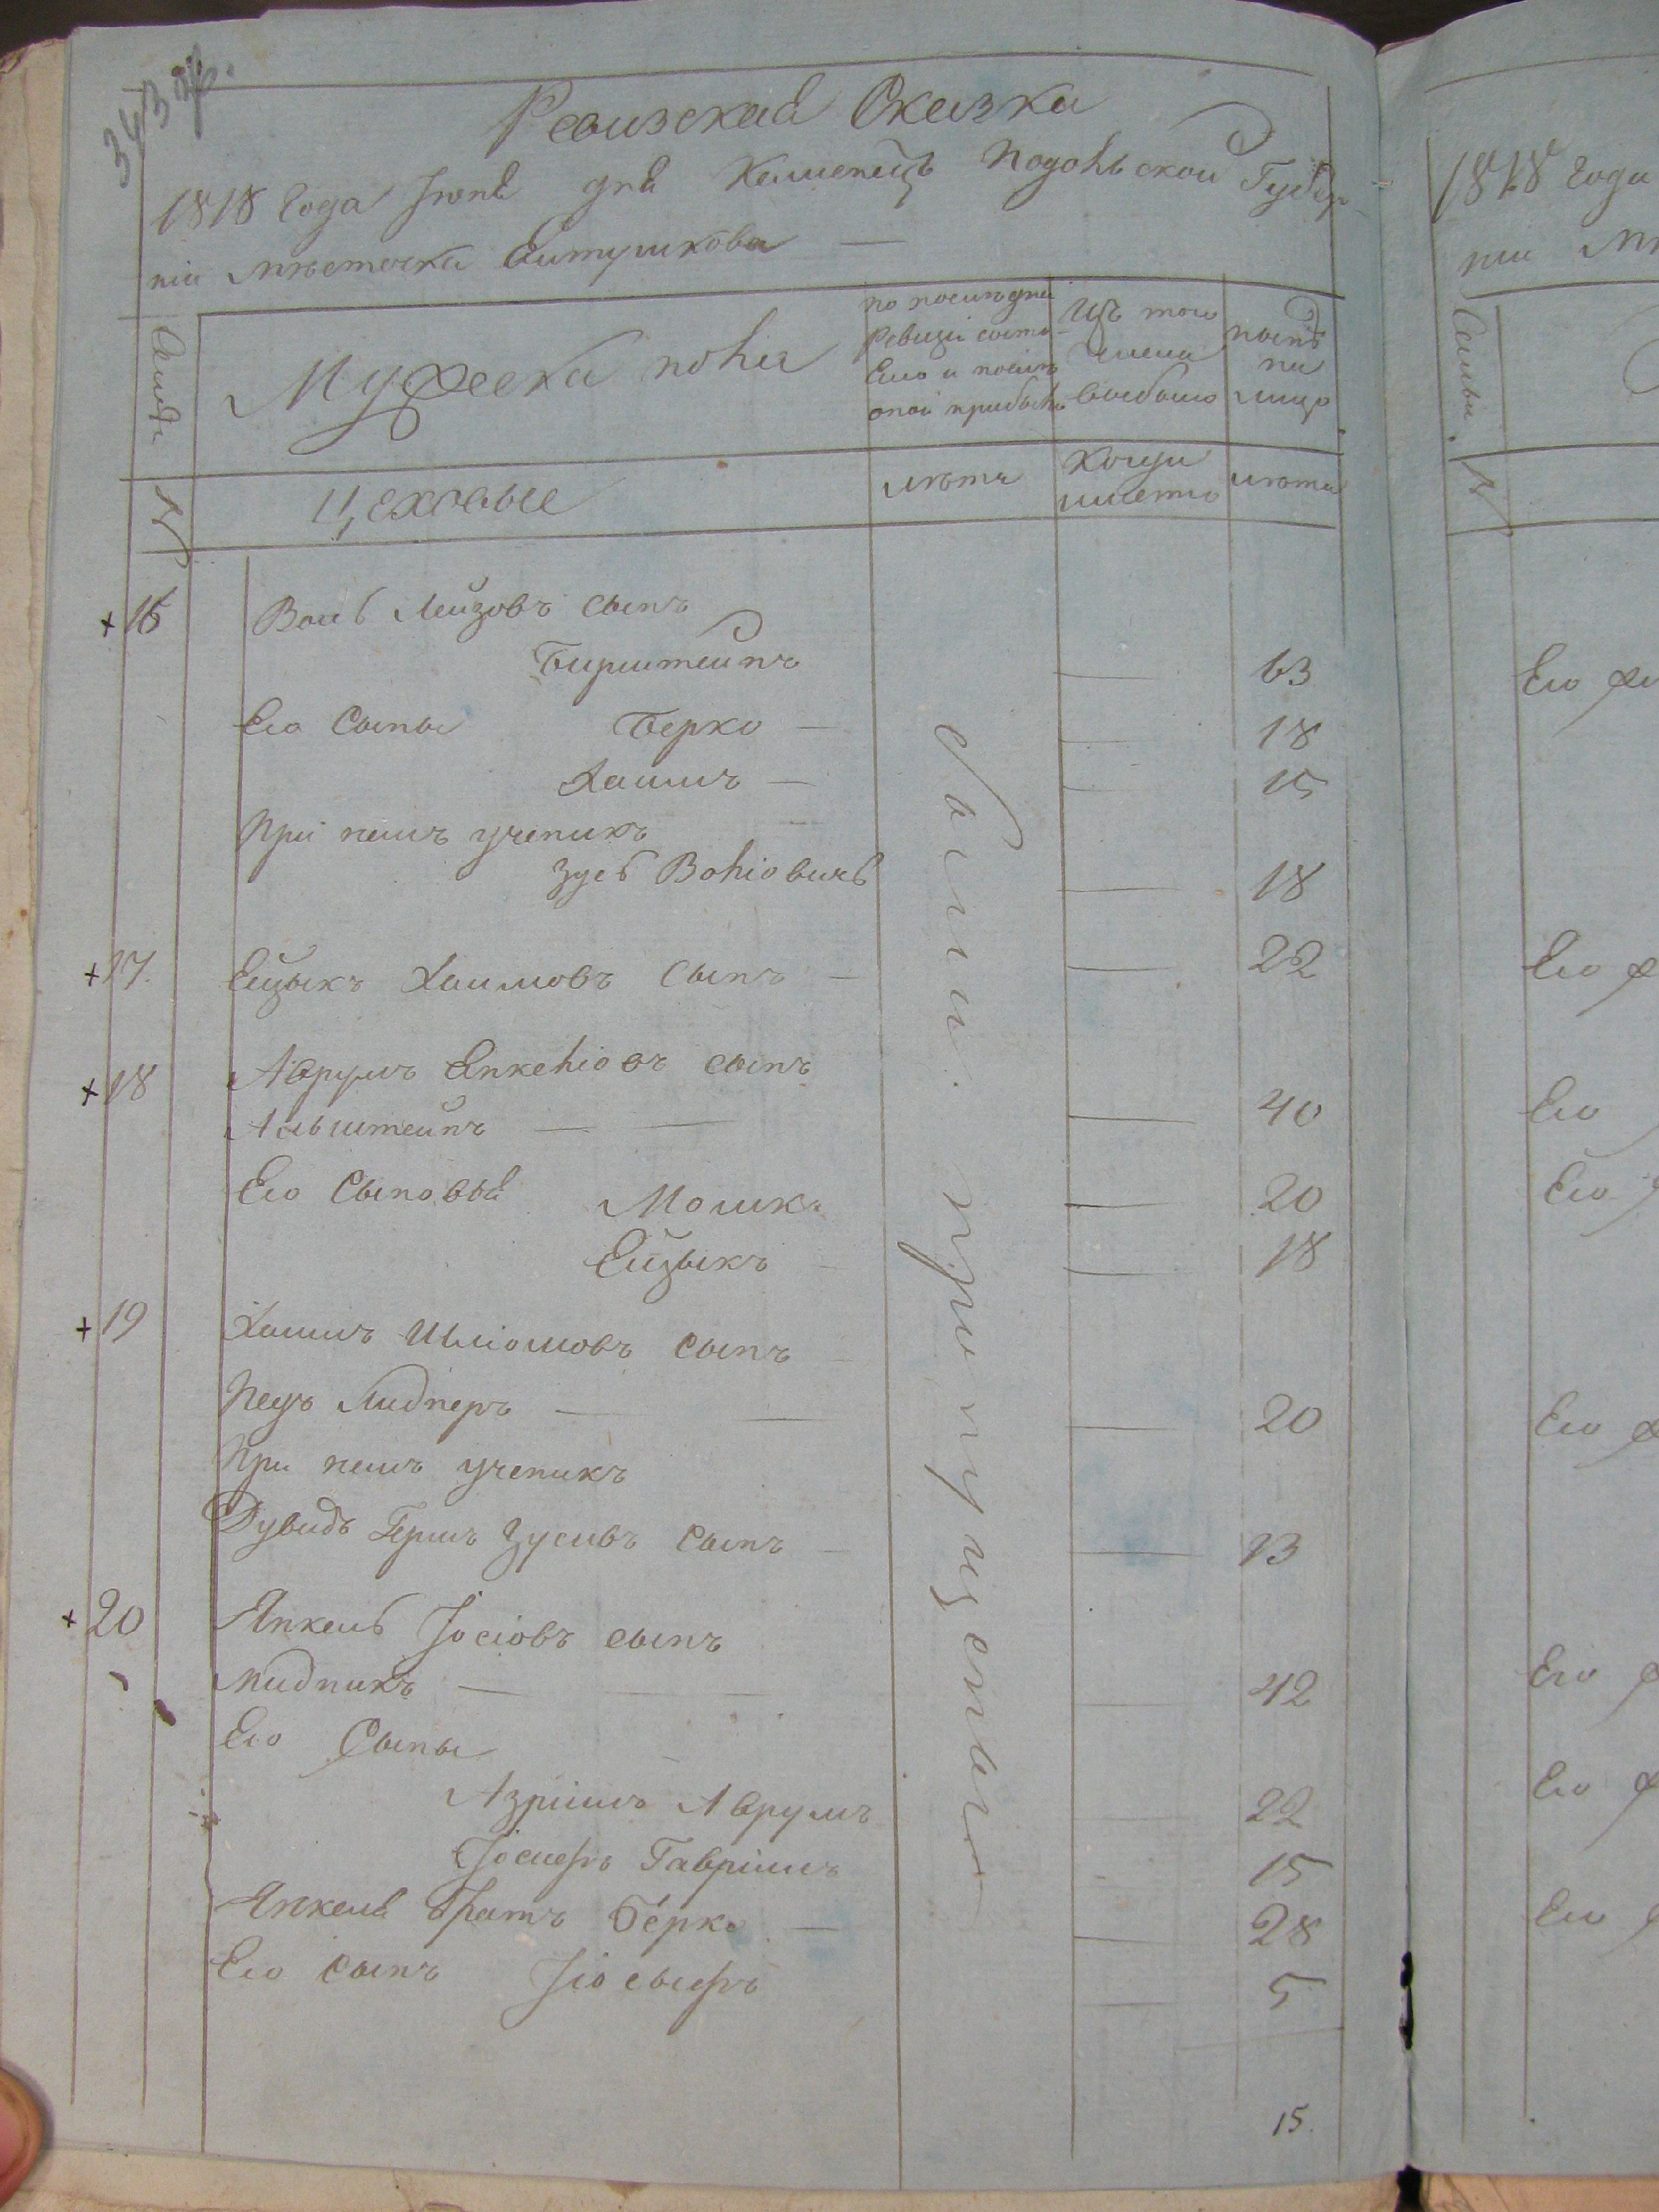 343 об.
Ревизская Сказка
1818 Года Іюня дня Каменецъ Подольской Губер
ніи мѣстечка Витушкова —
Семьи
Мужеска пола
по последней
Ревизіи состо
яло и послѣ
оной прибыло
Изъ того
числа
выбыло
нынѣ
на
лицо
№
Цеховые
лѣта
Когда
имянно
лѣта
+16 Волѣ Лейзовъ сынъ
Бирштейнъ — 63
Его Сыны Берко — — 18
Хаимъ — — 15
При немъ ученикъ
Зусь Вольіовичь — 18
+17. Ейцыкъ Хаимовъ Сынъ — — 22
+18 Аврумъ Янкеліовъ сынъ
Альштейнъ — — — 40
Его Сыновья Мошко — 20
Ейцыкъ — 18
+19 Хаимъ Шліомовъ сынъ
Лиднеръ — — — 20
При немъ ученикъ
Дувидъ Гершъ Зусивъ Сынъ — — 13
+20 Янкель Іосіовъ сынъ
Мидникъ — — — 42
Его Сыны
Азріилъ Аврумъ — 22
Іосифъ Гавріилъ 15
Янкеля Братъ Берко — — 28
Его сынъ Іосыфъ — 5
были пропущены
15
1818 Года
ніи
Семьи
№
Его
Его
Его
Его
Его
Его
Его
Его